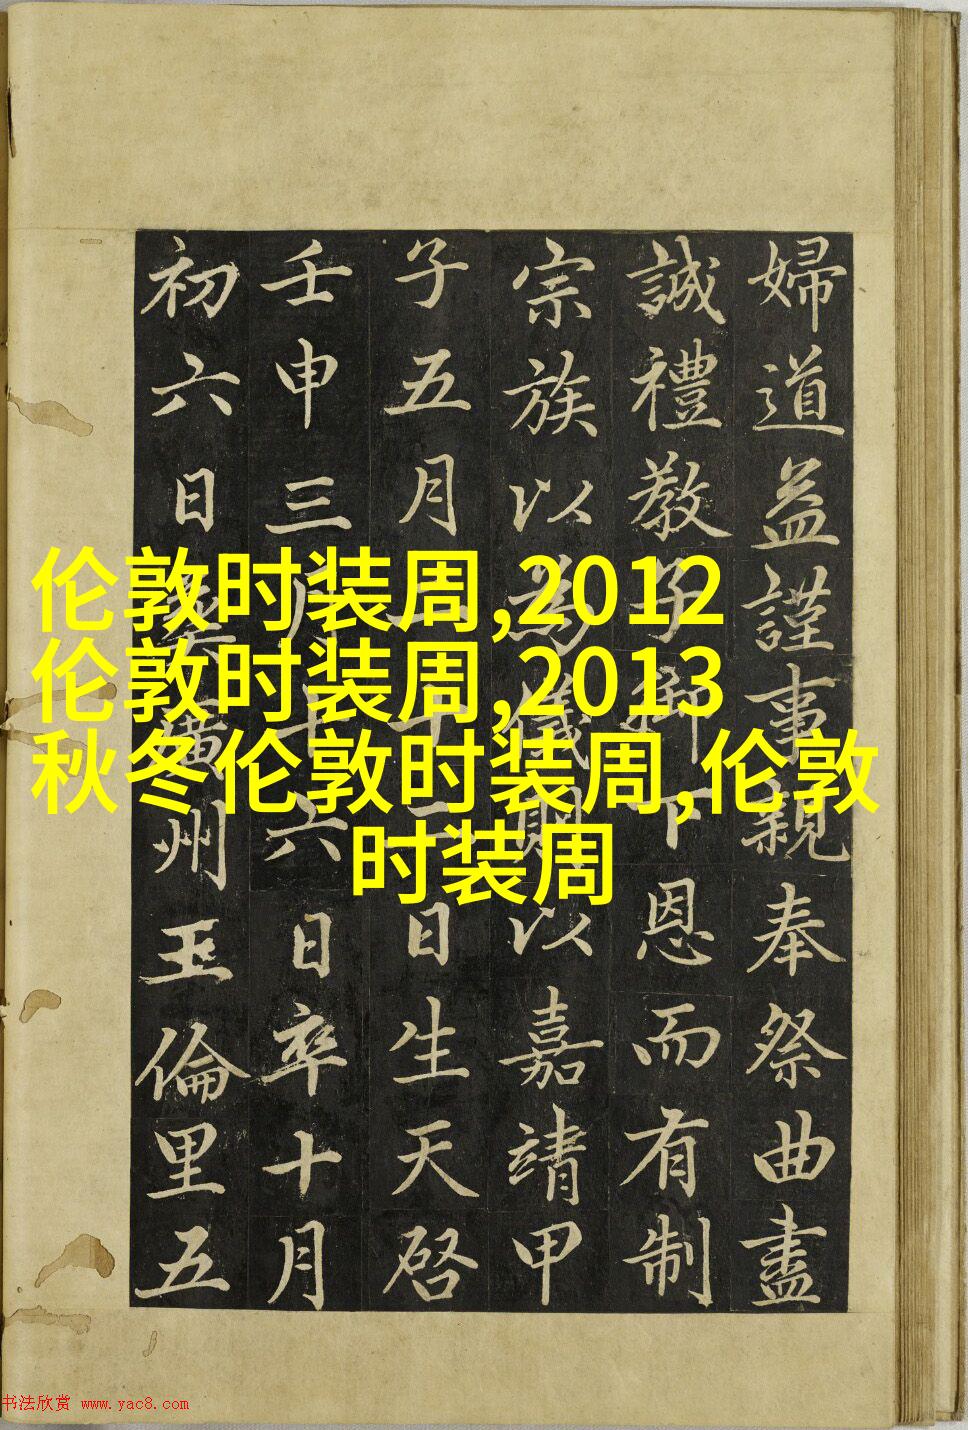 伦敦时装周,2012
伦敦时装周,2013
秋冬伦敦时装周,伦敦
时装周
婦道益謹事親奉祭曲盡
誠禮教子御下恩而有制
宗族以為儀則以嘉靖甲
子五月十二日生天啓
壬申三月十六日卒十月
初六日州玉倫里五
书法欣赏 www.yac8.com